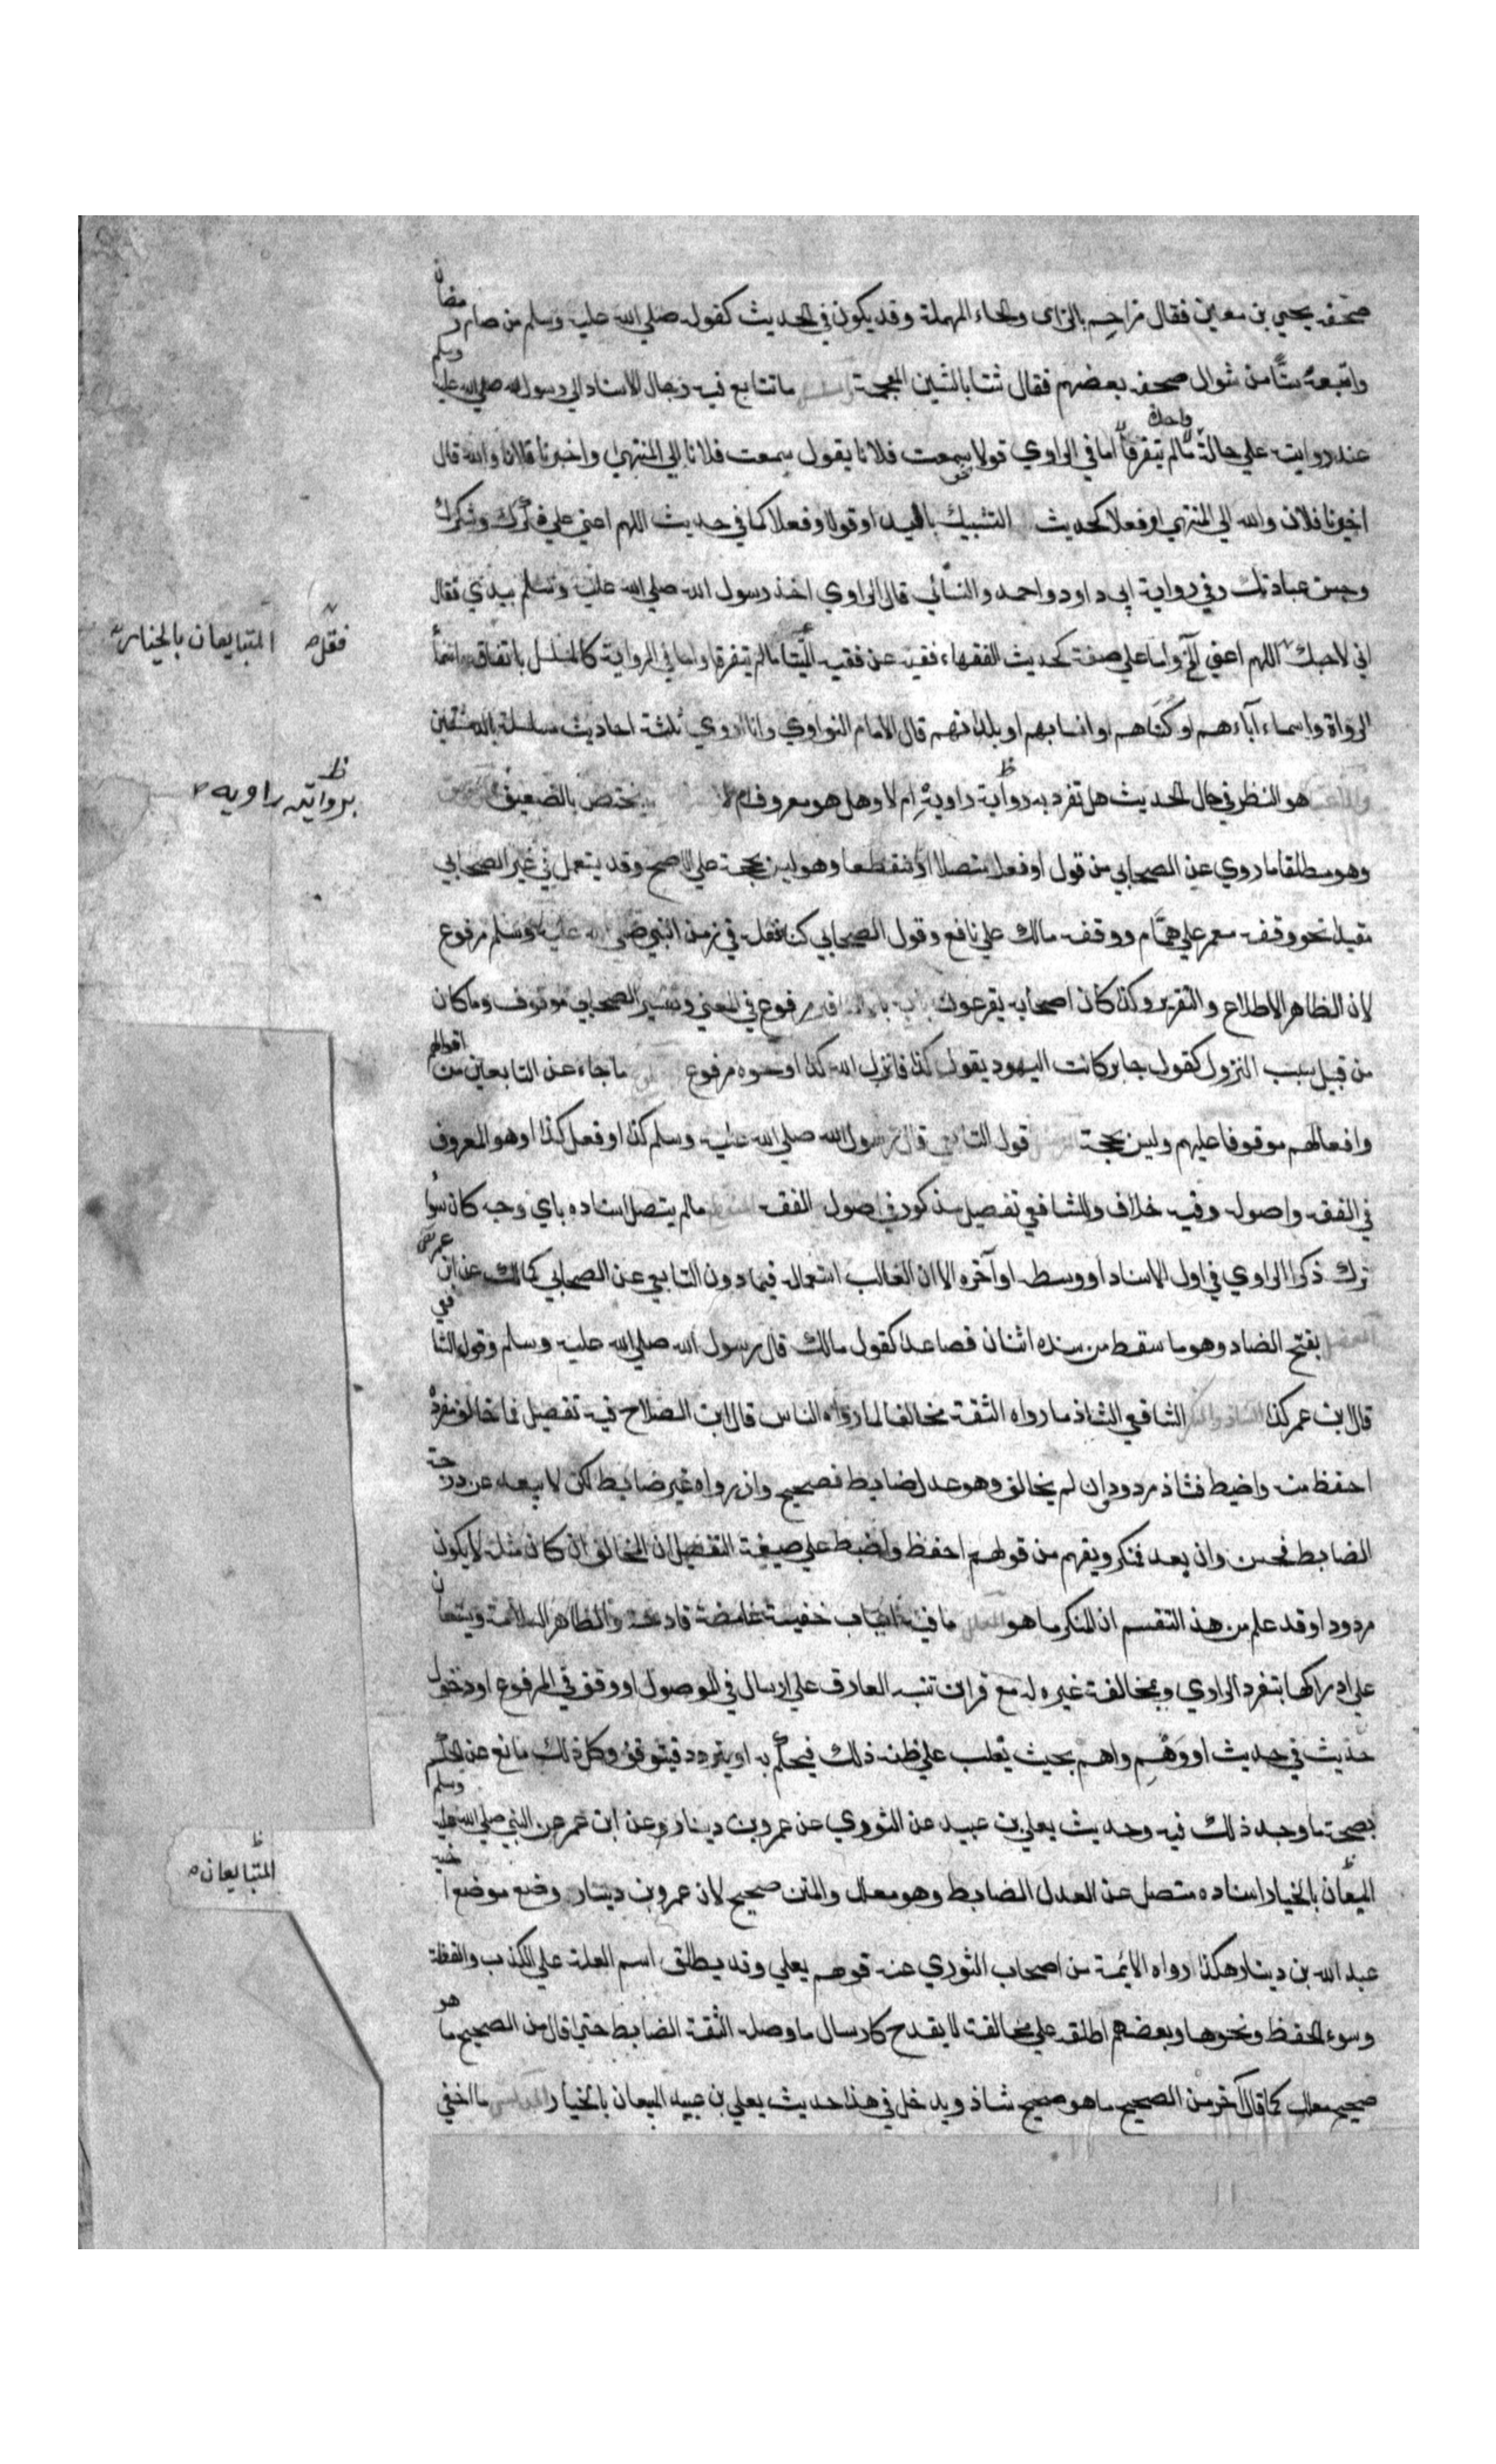 صحفه يحيي بن معين فقال مزاحم بالزاى والحاء المهملة وقد يكون في الحديث كقوله صلي الله عليه وسلم من صام رمضان
واتبعه ستا من شوال صحفه بعضهم فقال شتا بالشين المعجمة ما تتابع فيه رجال الاسناد الي رسول الله صلي الله عليه وسلم
عند روايته علي حالة واحدة ما لم يتفرقا اما في الراوي قولا سمعت فلانا يقول سمعت فلانا الي المنتهي واخبرنا فلان والله قال
اخبرنا فلان والله الي المنتهي او فعلا كحديث التشبيك باليد او قولا وفعلا كما في حديث اللهم اعني علي ذكرك وشكرك
وحسن عبادتك وفي رواية ابي داود واحمد والنسائي قال الراوي اخذ رسول الله صلي الله عليه وسلم بيدي فقال
اني لاحبك اللهم اعني الخ واما علي صفة كحديث الفقهاء فقيه عن فقيه ما لم يتفرقا واما في الرواية كالمسلسل باتفاق اسماء
الرواة واسماء آباءهم او كناهم او انسابهم او بلدانهم قال الامام النواوي وانا اروي ثلثة احاديث مسلسلة بالدمشقيين
هو النظر في حال الحديث هل تفرد به رواية راويه ام لا وهل هو معروف ام لا يختص بالضعيف
وهو مطلقا ما روي عن الصحابي من قول او فعل متصلا او منقطعا وهو ليس بحجة علي الاصح وقد يستعمل في غير الصحابي
مقيدا نحو وقفه معمر علي همام ووقفه مالك علي نافع وقول الصحابي كنا نفعله في زمن النبي صلي الله عليه وسلم مرفوع
لان الظاهر الاطلاع والتقرير وكذا كان اصحابه يقرعون بابه مرفوع في المعني وتفسير الصحابي موقوف وما كان
من قبيل سبب النزول كقول جابر كانت اليهود يقول كذا فانزل الله كذا او نحوه مرفوع ما جاء عن التابعين من اقوالهم
وافعالهم موقوفا عليهم وليس بحجة قول التابعي قال رسول الله صلي الله عليه وسلم كذا او فعل كذا وهو المعروف
في الفقه واصوله وفيه خلاف وللشافعي تفصيل مذكور في اصول الفقه ما لم يتصل اسناده باي وجه كان سوا
ترك ذكر الراوي في اول الاسناد او وسطه او آخره الا ان الغالب استعماله فيما دون التابعي عن الصحابي كمالك عن ابن عمر
بفتح الضاد وهو ما سقط من سنده اثنان فصاعدا كقول مالك قال رسول الله صلي الله عليه وسلم وقول الشافعي
قال ابن عمر كذا الشافعي الشاذ ما رواه الثقة مخالفا لما رواه الناس قال ابن الصلاح فيه تفصيل فما خالف مفرده
احفظ منه واضبط فشاذ مردود وان لم يخالف وهو عدل ضابط فصحيح وان رواه غير ضابط لكن لا يبعد عن درجة
الضابط فحسن وان بعد فمنكر ويفهم من قولهم احفظ واضبط علي صيغة التفضيل ان المخالف ان كان مثله لا يكون
مردودا وقد علم من هذا التقسيم ان المنكر ما هو ما فيه اسباب خفية غامضة قادحة والظاهر السلامة ويستعان
علي ادراكها بتفرد الراوي وبمخالفة غيره له مع قرائن تنبه العارف علي ارسال في الموصول او وقف في المرفوع او دخول
حديث في حديث او وهم واهم بحيث يغلب علي ظنه ذلك فيحكم به او يتردد فيتوقف وكل ذلك مانع عن الحكم
بصحة ما وجد ذلك فيه وحديث يعلي بن عبيد عن الثوري عن عمرو بن دينار عن ابن عمر عن النبي صلي الله عليه وسلم
البيعان بالخيار اسناده متصل عن العدل الضابط وهو معلل والمتن صحيح لان عمرو بن دينار وضع موضع اخيه
عبد الله بن دينار هكذا رواه الائمة من اصحاب الثوري عنه فوهم يعلي وقد يطلق اسم العلة علي الكذب والغفلة
وسوء الحفظ ونحوها وبعضهم اطلقه علي مخالفة لا يقدح كارسال ما وصله الثقة الضابط حتي قال من الصحيح ما هو
صحيح معلل كما قال آخر من الصحيح ما هو صحيح شاذ ويدخل في هذا حديث يعلي بن عبيد البيعان بالخيار ما اخفي
المتبايعان بالخيار
بروايته راويه
المتبايعان